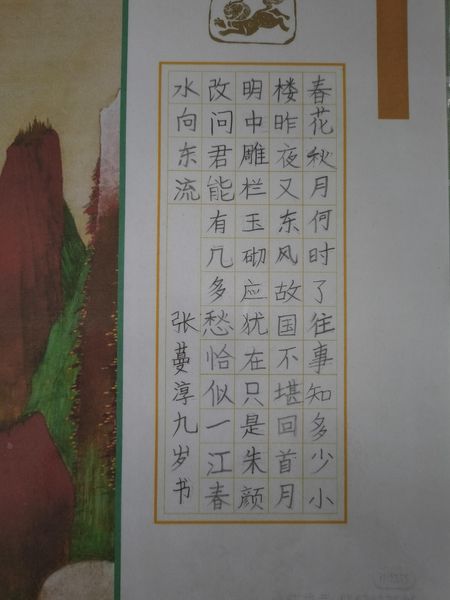 春花秋月何时了往事知多少小
楼昨夜又东风故国不堪回首月
明中雕栏玉砌应犹在只是朱颜
改问君能有几多愁恰似一江春
水向东流 张蔓淳九岁书